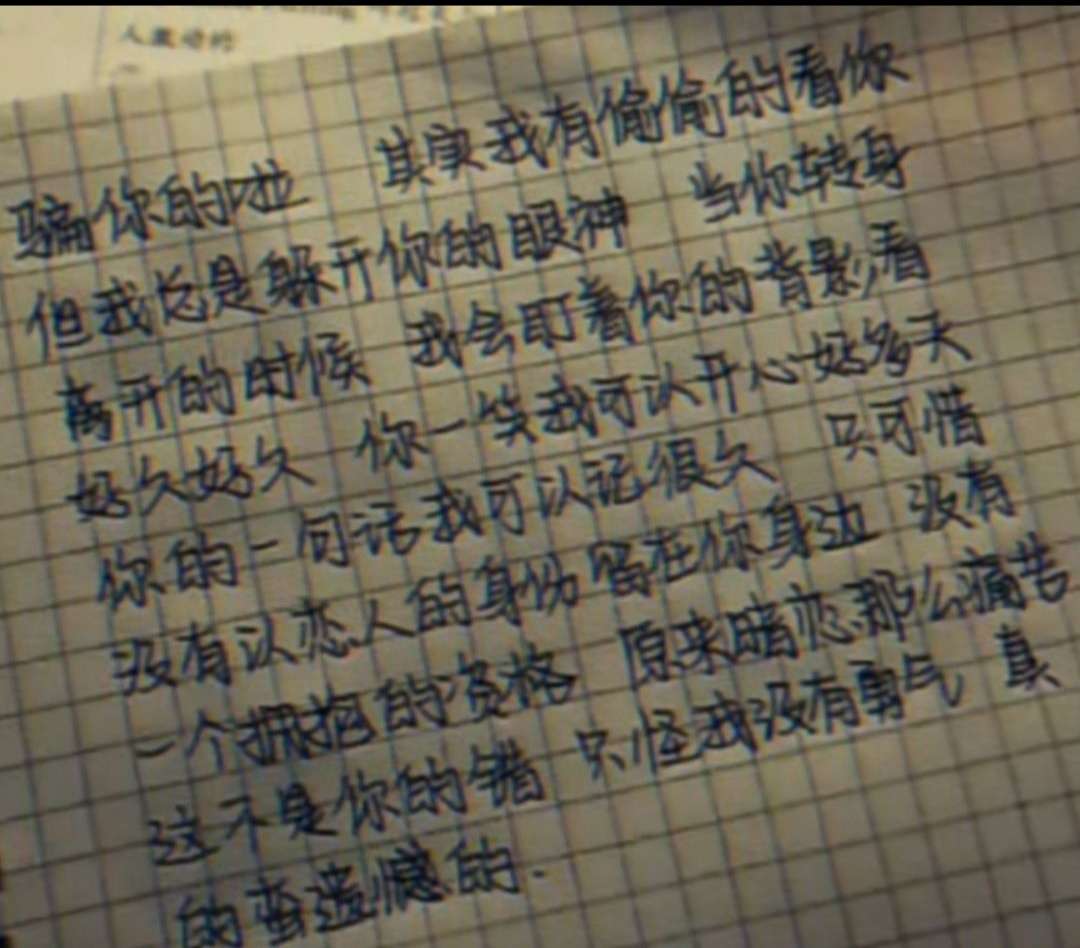 人最好的
骗你的啦 其实我有偷偷的看你
但我总是躲开你的眼神 当你转身
离开的时候 我会盯着你的背影看
好久好久 你一笑我可以开心好多天
你的一句话我可以记很久 只可惜
没有以恋人的身份留在你身边 没有
一个拥抱的资格 原来暗恋那么痛苦
这不是你的错 只怪我没有勇气 真
的蛮遗憾的.